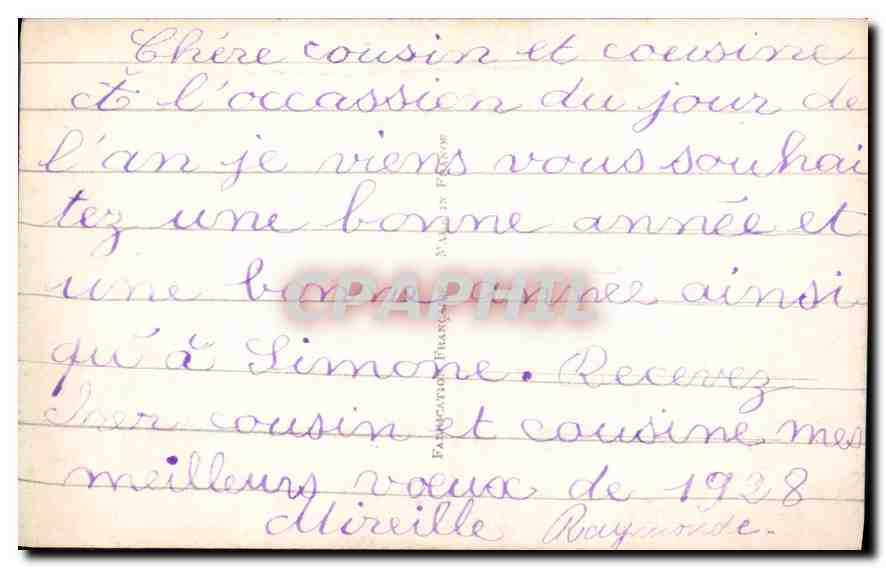 Chére cousin et cousine
À l'occassion du jour de
l'an je viens vous souhai
tez une bonne année et
une bonne année ainsi
qu'à Simone. Recevez
cher cousin et cousine mes
meilleurs vœux de 1928
Mireille Raymonde.
FABRICATION FRANÇAISE MADE IN FRANCE
CPAPHIL